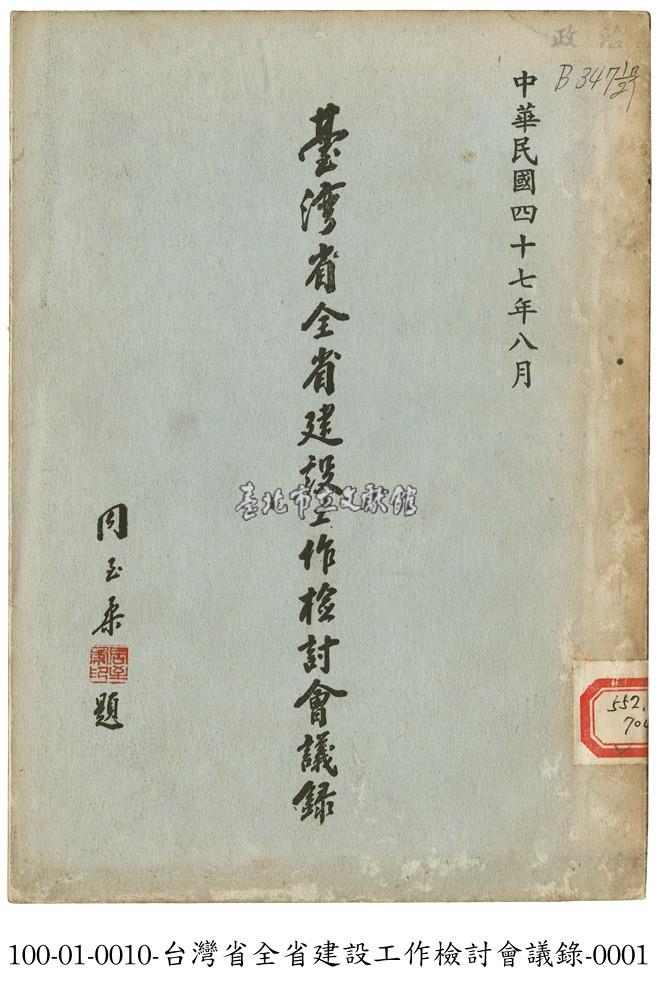 政治
B 347
中華民國四十七年八月
臺灣省全省建設工作檢討會議錄
臺北市立文獻館
周至柔
題
552.
704
100-01-0010-台灣省全省建設工作檢討會議錄-0001